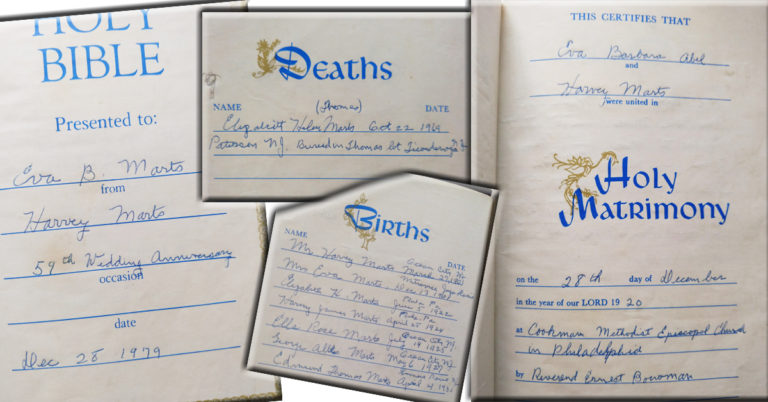 HOLY
BIBLE
Presented to:
Eva B. Marts
from
Harvey Marts
59th Wedding Anniversary
occasion
date
Dec 28 1979
Deaths
NAME (Thomas) DATE
Elizabeth Helen Marts Oct 22 1969
Paterson NJ. Buried in Thomas lot Ticonderoga N.Y.
Births
NAME DATE
Ocean City NJ
Mr Harvey Marts March 27, 1901
Mrs Eva Marts. Dec 13 1901
Phila Pa
Elizabeth H. Marts June 5 1922
Phila. Pa
Harvey James Marts April 25 1924
Ocean City NJ
Ella Rose Marts July 19 1925
Ocean City NJ
George Allen Marts May 6 1927
Edmund Thomas Marts April 4 1931
THIS CERTIFIES THAT
Eva Barbara Abel
and
Harvey Marts
were united in
Holy
Matrimony
on the 28th day of December
in the year of our LORD 19 20
at Cookman Methodist Episcopal Church
in Philadelphia
by Reverend Ernest Bowman